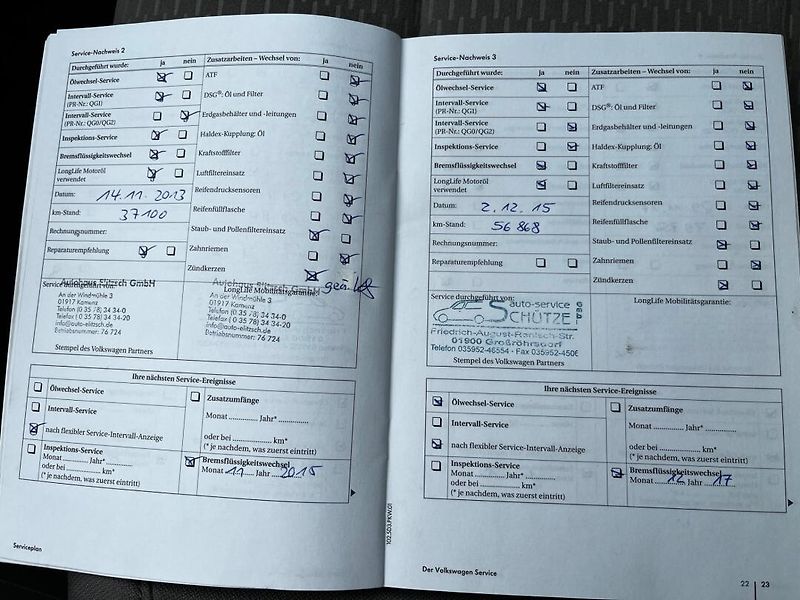 Service-Nachweis 2
Durchgeführt wurde: ja nein
Ölwechsel-Service
Intervall-Service
(PR-Nr.: QG1)
Intervall-Service
(PR-Nr.: QG0/QG2)
Inspektions-Service
Bremsflüssigkeitswechsel
LongLife Motoröl
verwendet
Datum: 14.11.2013
km-Stand: 37100
Rechnungsnummer:
Reparaturempfehlung
Zusatzarbeiten – Wechsel von: ja nein
ATF
DSG®: Öl und Filter
Erdgasbehälter und -leitungen
Haldex-Kupplung: Öl
Kraftstofffilter
Luftfiltereinsatz
Reifendrucksensoren
Reifenfüllflasche
Staub- und Pollenfiltereinsatz
Zahnriemen
Zündkerzen
Service durchgeführt von:
Autohaus Elitzsch GmbH
An der Windmühle 3
01917 Kamenz
Telefon (0 35 78) 34 34-0
Telefax (0 35 78) 34 34-20
info@auto-elitzsch.de
Betriebsnummer: 76 724
Stempel des Volkswagen Partners
Autohaus Elitzsch GmbH
LongLife Mobilitätsgarantie:
An der Windmühle 3
01917 Kamenz
Telefon (0 35 78) 34 34-0
Telefax (0 35 78) 34 34-20
info@auto-elitzsch.de
Betriebsnummer: 76 724
Ihre nächsten Service-Ereignisse
Ölwechsel-Service
Intervall-Service
nach flexibler Service-Intervall-Anzeige
Inspektions-Service
Monat .......... Jahr* ..........
oder bei .......... km*
(* je nachdem, was zuerst eintritt)
Zusatzumfänge
Monat .......... Jahr* ..........
oder bei .......... km*
(* je nachdem, was zuerst eintritt)
Bremsflüssigkeitswechsel
Monat 11 Jahr 2015
Serviceplan
102.5G3.FKW.01
Service-Nachweis 3
Durchgeführt wurde: ja nein
Ölwechsel-Service
Intervall-Service
(PR-Nr.: QG1)
Intervall-Service
(PR-Nr.: QG0/QG2)
Inspektions-Service
Bremsflüssigkeitswechsel
LongLife Motoröl
verwendet
Datum: 2.12.15
km-Stand: 56868
Rechnungsnummer:
Reparaturempfehlung
Zusatzarbeiten – Wechsel von: ja nein
ATF
DSG®: Öl und Filter
Erdgasbehälter und -leitungen
Haldex-Kupplung: Öl
Kraftstofffilter
Luftfiltereinsatz
Reifendrucksensoren
Reifenfüllflasche
Staub- und Pollenfiltereinsatz
Zahnriemen
Zündkerzen
Service durchgeführt von:
auto-service
SCHÜTZE
GmbH
Friedrich-August-Ranisch-Str.
01900 Großröhrsdorf
Telefon 035952-46554 · Fax 035952-4506
Stempel des Volkswagen Partners
LongLife Mobilitätsgarantie:
Ihre nächsten Service-Ereignisse
Ölwechsel-Service
Intervall-Service
nach flexibler Service-Intervall-Anzeige
Inspektions-Service
Monat .......... Jahr* ..........
oder bei .......... km*
(* je nachdem, was zuerst eintritt)
Zusatzumfänge
Monat .......... Jahr* ..........
oder bei .......... km*
(* je nachdem, was zuerst eintritt)
Bremsflüssigkeitswechsel
Monat 12 Jahr 17
Der Volkswagen Service
22 | 23